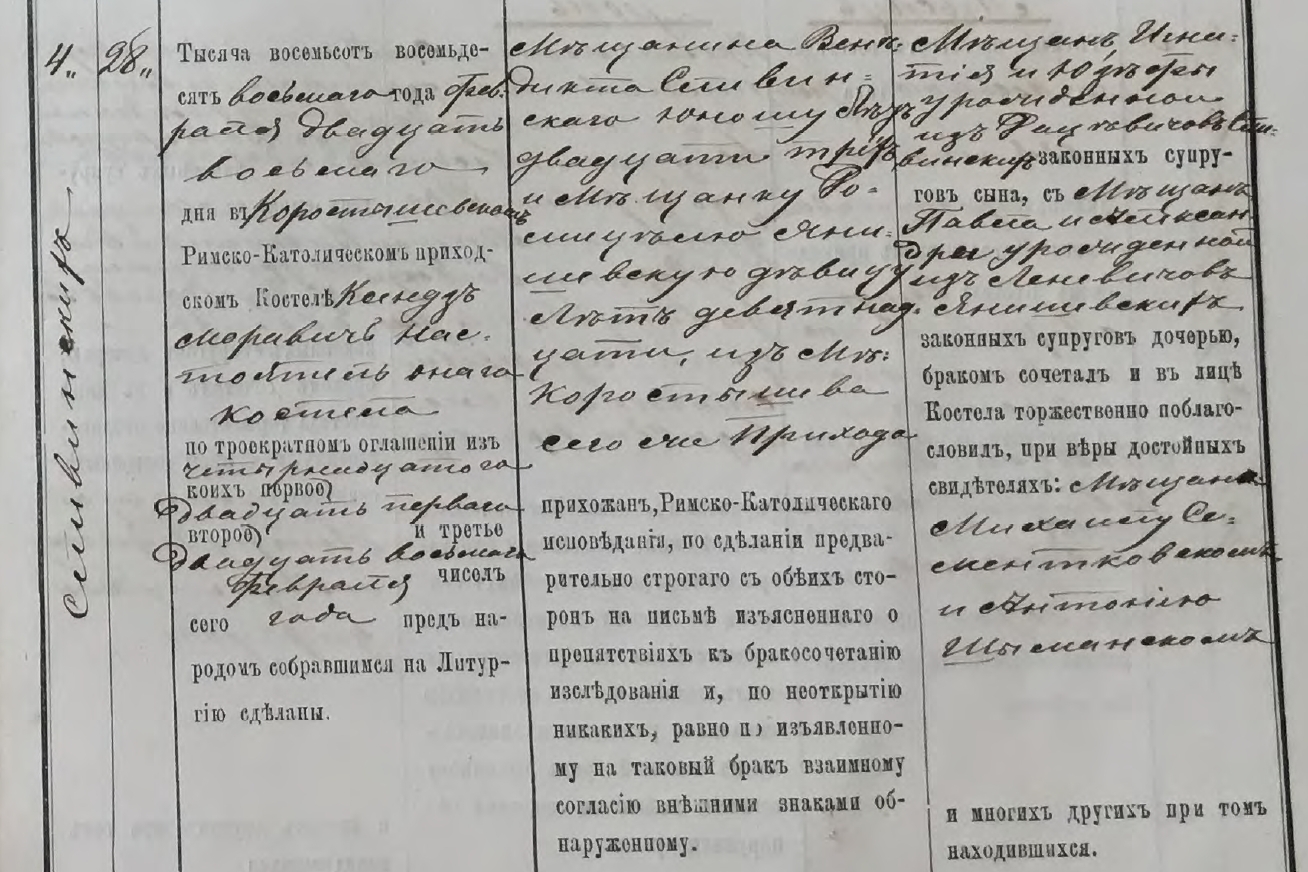 4„ 28„
Сливинскихъ
Тысяча восемьсотъ восемьде-
сятъ восьмаго года Фев-
раля двадцать
восьмаго
дня въ Коростышевскомъ
Римско-Католическомъ приход-
скомъ Костелѣ Ксендзъ
Моравичъ Нас-
тоятель онаго
костела
по троекратномъ оглашеніи изъ
четырнадцатого
коихъ первое)
двадцать перваго
второе) и третье
двадцать восьмаго
Февраля чиселъ
сего года предъ на-
родомъ собравшимся на Литур-
гію сдѣланы.
Мѣщанина Вене-
дикта Сливин-
скаго юношу лѣтъ
двадцати трехъ
и Мѣщанку Фе-
лицѣлю Яни-
шевскую дѣвицу
лѣтъ девятнад-
цати, изъ Мѣ:
Коростышева
сего же Прихода
прихожан, Римско-Католическаго
исповѣданія, по сдѣланіи предва-
рительно строгаго съ обѣихъ сто-
ронъ на письмѣ изъясненнаго о
препятствіяхъ къ бракосочетанію
изслѣдованія и, по неоткрытію
никакихъ, равно по изъявленно-
му на таковый бракъ взаимному
согласію внѣшними знаками об-
наруженному.
Мѣщанъ, Игна-
тія и Юзѣфы
урожденной
изъ Сли-
винскихъ законныхъ супру-
говъ сына, съ Мѣщанъ
Павла и Алексан-
дры урожденной
изъ Леневичовъ
Янишевскихъ
законныхъ супруговъ дочерью,
бракомъ сочеталъ и въ лицѣ
Костела торжественно поблаго-
словилъ, при вѣры достойныхъ
свидѣтеляхъ: Мѣщана
Михаилу Се-
ментковскомъ
и Антонію
Шыманскомъ
и многихъ другихъ при томъ
находившихся.